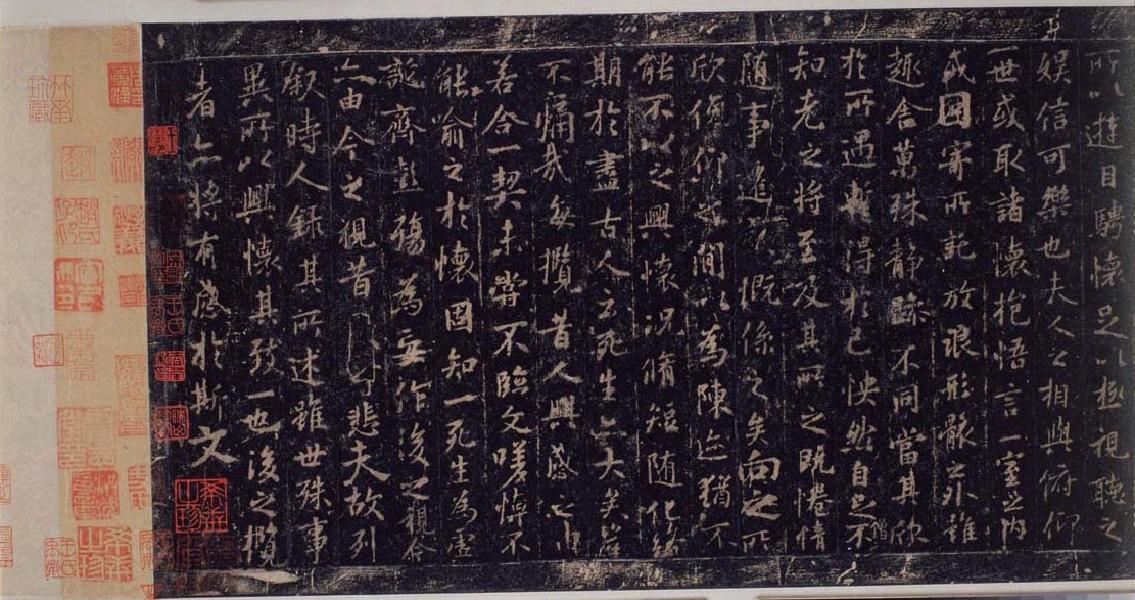 所以遊目騁懷足以極視聽之
娛信可樂也夫人之相與俯仰
一世或取諸懷抱悟言一室之內
或因寄所託放浪形骸之外雖
趣舍萬殊靜躁不同當其欣
於所遇暫得於己怏然自足不
僧
知老之將至及其所之既惓情
隨事遷感慨係之矣向之所
欣俛仰之間以為陳迹猶不
能不以之興懷況脩短隨化終
期於盡古人云死生亦大矣豈
不痛哉每攬昔人興感之由
若合一契未嘗不臨文嗟悼不
能喻之於懷固知一死生為虛
誕齊彭殤為妄作後之視今
亦由今之視昔悲夫故列
敘時人錄其所述雖世殊事
異所以興懷其致一也後之攬
者亦將有感於斯文